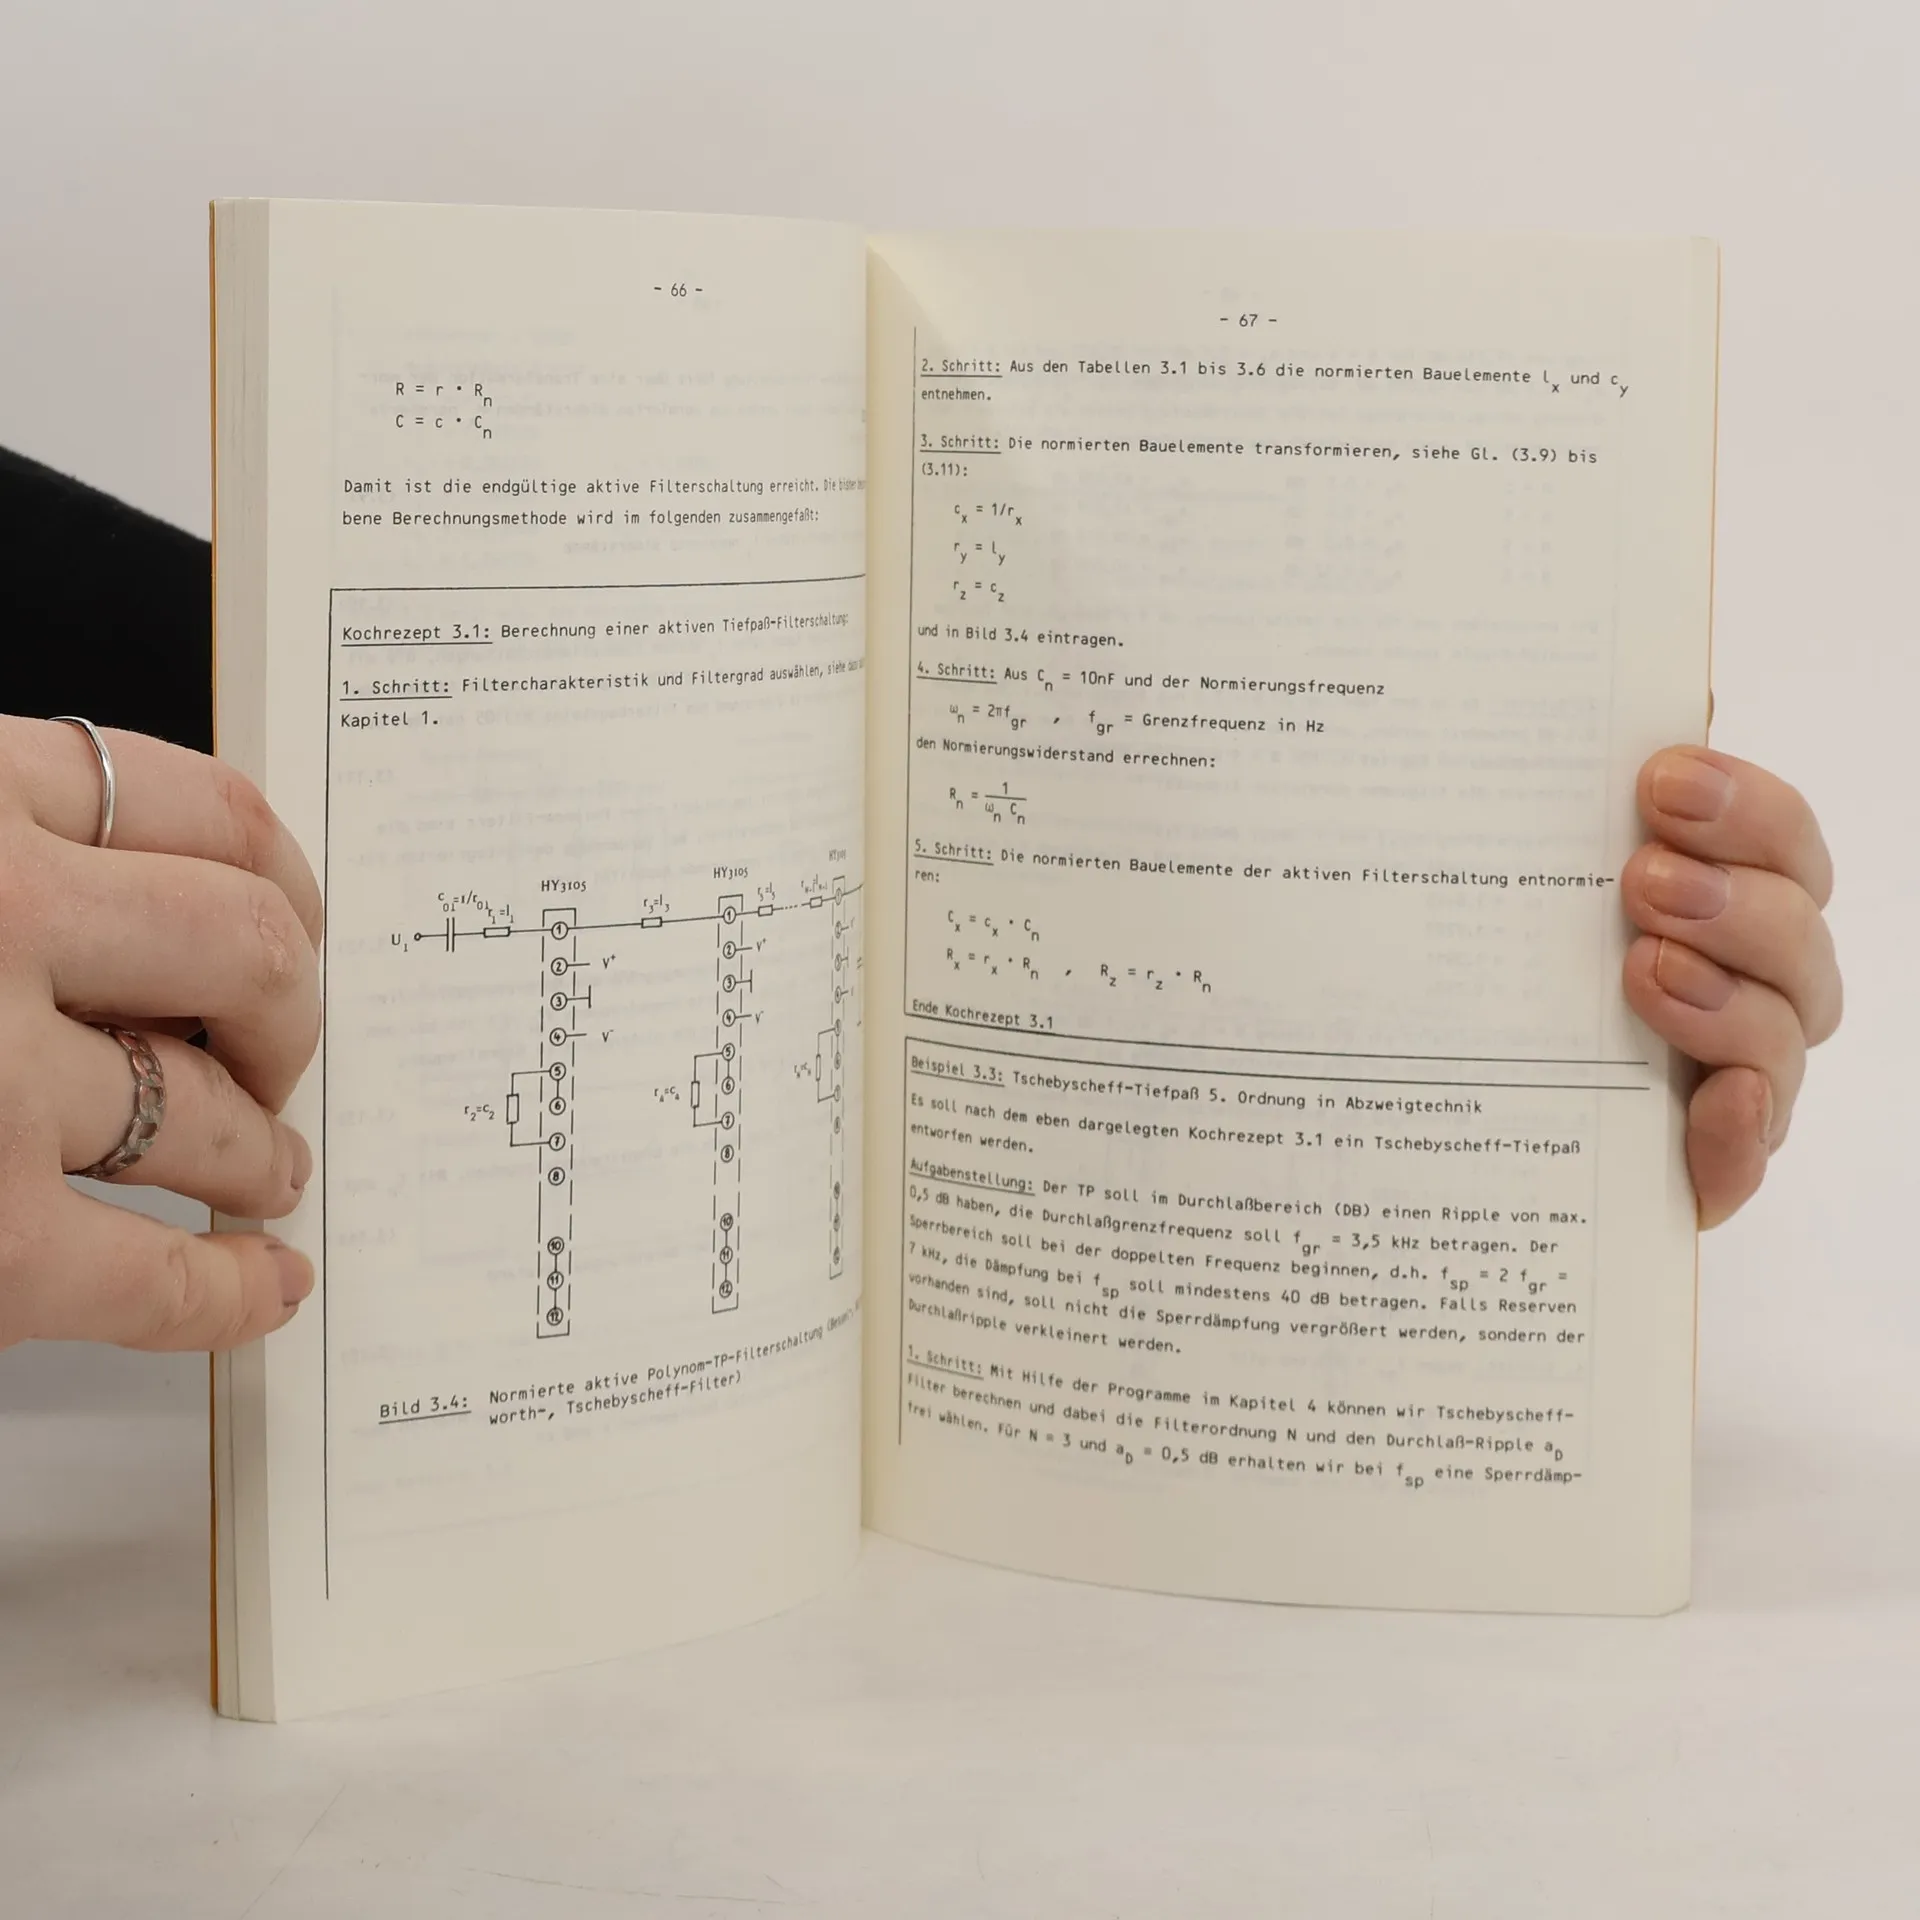 - 66 -
R = r · Rn
C = c · Cn
Damit ist die endgültige aktive Filterschaltung erreicht. Die
bene Berechnungsmethode wird im folgenden zusammengefaßt:
Kochrezept 3.1: Berechnung einer aktiven Tiefpaß-Filterschaltung:
1. Schritt: Filtercharakteristik und Filtergrad auswählen, siehe
Kapitel 1.
HY3105
HY3105
HY3105
c01=1/r01
r1=l1
r3=l3
r5=l5
U1
1
2 V+
3
4 V-
5
6
7
8
10
11
12
r2=c2
1
2 V+
3
4 V-
5
6
7
8
10
11
12
r4=c4
Bild 3.4: Normierte aktive Polynom-TP-Filterschaltung
worth-, Tschebyscheff-Filter)
- 67 -
2. Schritt: Aus den Tabellen 3.1 bis 3.6 die normierten Bauelemente lx und cy
entnehmen.
3. Schritt: Die normierten Bauelemente transformieren, siehe Gl. (3.9) bis
(3.11):
cx = 1/rx
ry = ly
rz = cz
und in Bild 3.4 eintragen.
4. Schritt: Aus Cn = 10nF und der Normierungsfrequenz
ωn = 2πfgr , fgr = Grenzfrequenz in Hz
den Normierungswiderstand errechnen:
Rn = 1
ωn Cn
5. Schritt: Die normierten Bauelemente der aktiven Filterschaltung entnormie-
ren:
Cx = cx · Cn
Rx = rx · Rn , Rz = rz · Rn
Ende Kochrezept 3.1
Beispiel 3.3: Tschebyscheff-Tiefpaß 5. Ordnung in Abzweigtechnik
Es soll nach dem eben dargelegten Kochrezept 3.1 ein Tschebyscheff-Tiefpaß
entworfen werden.
Aufgabenstellung: Der TP soll im Durchlaßbereich (DB) einen Ripple von max.
0,5 dB haben, die Durchlaßgrenzfrequenz soll fgr = 3,5 kHz betragen. Der
Sperrbereich soll bei der doppelten Frequenz beginnen, d.h. fsp = 2 fgr =
7 kHz, die Dämpfung bei fsp soll mindestens 40 dB betragen. Falls Reserven
vorhanden sind, soll nicht die Sperrdämpfung vergrößert werden, sondern der
Durchlaßripple verkleinert werden.
1. Schritt: Mit Hilfe der Programme im Kapitel 4 können wir Tschebyscheff-
Filter berechnen und dabei die Filterordnung N und den Durchlaß-Ripple aD
frei wählen. Für N = 3 und aD = 0,5 dB erhalten wir bei fsp eine Sperrdämp-